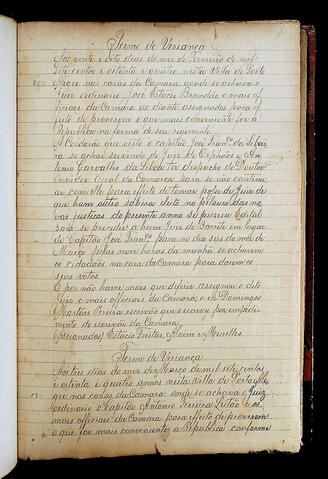 Termo de Veriança
Aos vente e oito dias do mez de Fevereiro de mil
sete centos e oitenta e quatro nesta Villa de Porto
Alegre nas cazas da Camara aonde se achava o
Juiz ordinario José Estacio Brandão e mais of
ficiaes da Camara ao diante assignados para ef
feito de proverem o que mais conveniente for á
Republica na forma de seu regimento
Acordarão que visto o capitão José Franco da Silvei
ra se achar servindo de Juiz de Orphãos e An
tonio Carvalho da Silva ter despacho do Doutor
Ouvidor Geral da Comarca para se não continu
ar com elle para effeito de tomar posse de Juiz de
que hum outro sahira eleito no pilouro das no
vas justiças do presente anno se puzesse Edital
para se proceder a hum Juiz de Barrete em lugar
do Capitão José Franco para no dia seis do mez de
Março pelas nove horas da manhã se acharem
os cidadãos na caza da Camara para darem os
seus votos.
E por não haver mais que diferir assignou o dito
Juiz e mais officiaes da Camara, e eu Domingos
Martins Pereira escrivão que o escrevy por impedi
mento do escrivão da Camara.
(Assignados) Estacio, Freitas, Alvim e Meirelles.
Termo de Veriança
Aos tres dias do mez de Março de mil sete centos
e oitenta e quatro annos nesta Villa de Porto Ale
gre nas cazas da Camara onde se achava o Juiz
ordinario o Capitão Antonio Ferreira Leitão e os
mais officiaes da Camara para effeito de proverem
o que for mais conveniente a Republica conforme